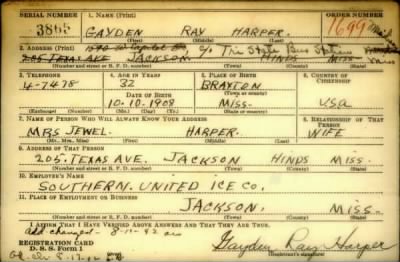 SERIAL NUMBER 1. NAME (Print) ORDER NUMBER
3865 GAYDEN RAY HARPER. 1699
(First) (Middle) (Last)
2. ADDRESS (Print) c/o Tri State Bus Station
205 TEXAS AVE JACKSON. HINDS MISS Miss
(Number and street or R. F. D. number) (Town) (County) (State)
3. TELEPHONE 4. AGE IN YEARS 5. PLACE OF BIRTH 6. COUNTRY OF CITIZENSHIP
4-7478 32 BRAXTON
DATE OF BIRTH (Town or county)
10.10.1908 MISS- USA
(Exchange) (Number) (Mo.) (Day) (Yr.) (State or country)
7. NAME OF PERSON WHO WILL ALWAYS KNOW YOUR ADDRESS 8. RELATIONSHIP OF THAT PERSON
MRS JEWEL HARPER. WIFE
(Mr., Mrs., Miss) (First) (Middle) (Last)
9. ADDRESS OF THAT PERSON
205. TEXAS AVE. JACKSON HINDS MISS.
(Number and street or R. F. D. number) (Town) (County) (State)
10. EMPLOYER'S NAME
SOUTHERN. UNITED ICE CO.
11. PLACE OF EMPLOYMENT OR BUSINESS
JACKSON. MISS.
(Number and street or R. F. D. number) (Town) (County) (State)
I AFFIRM THAT I HAVE VERIFIED ABOVE ANSWERS AND THAT THEY ARE TRUE.
Add changed - 8-11-42
REGISTRATION CARD
D. S. S. Form 1 Gayden Ray Harper
(Registrant's signature)